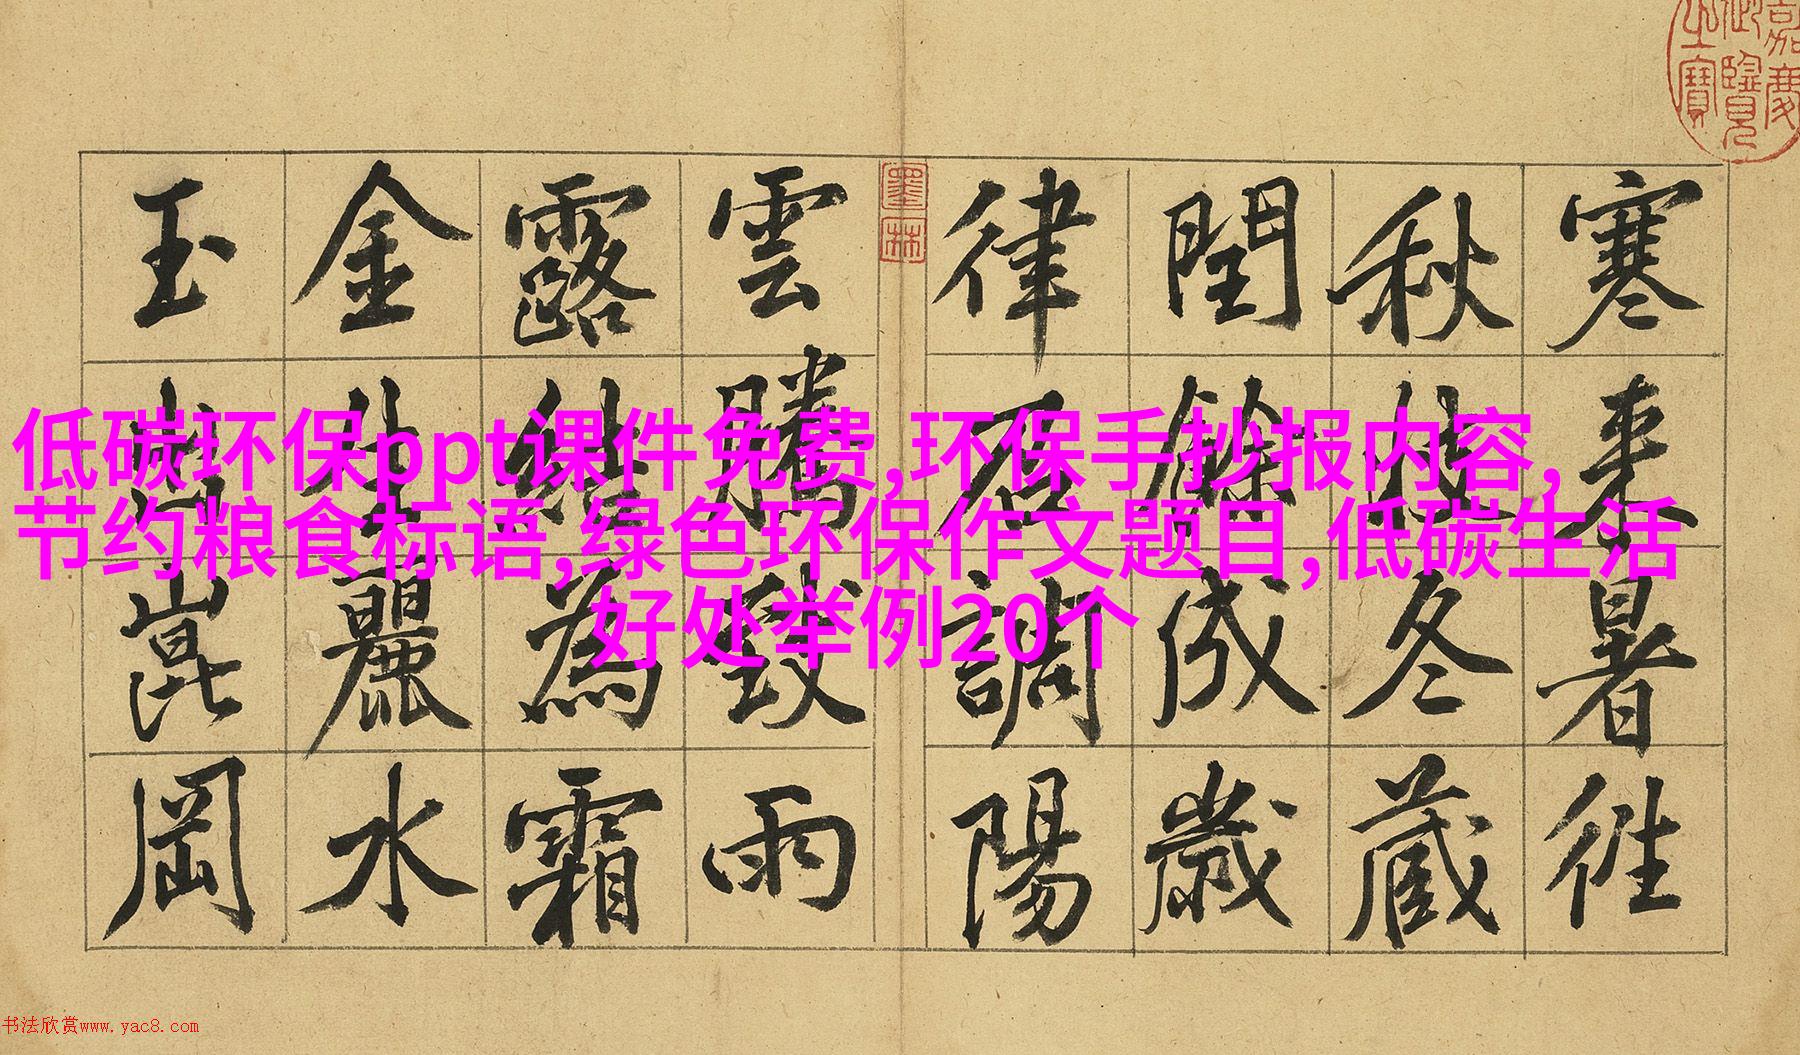 低碳环保ppt课件免费,环保手抄报内容,
节约粮食标语,绿色环保作文题目,低碳生活
好处举例20个
寒来暑徃
秋收冬藏
閏餘成歲
律調陽
雲騰致雨
露結為霜
金生麗水
玉出崑岡
嘉慶御覽之寶
墨林
书法欣赏www.yac8.com